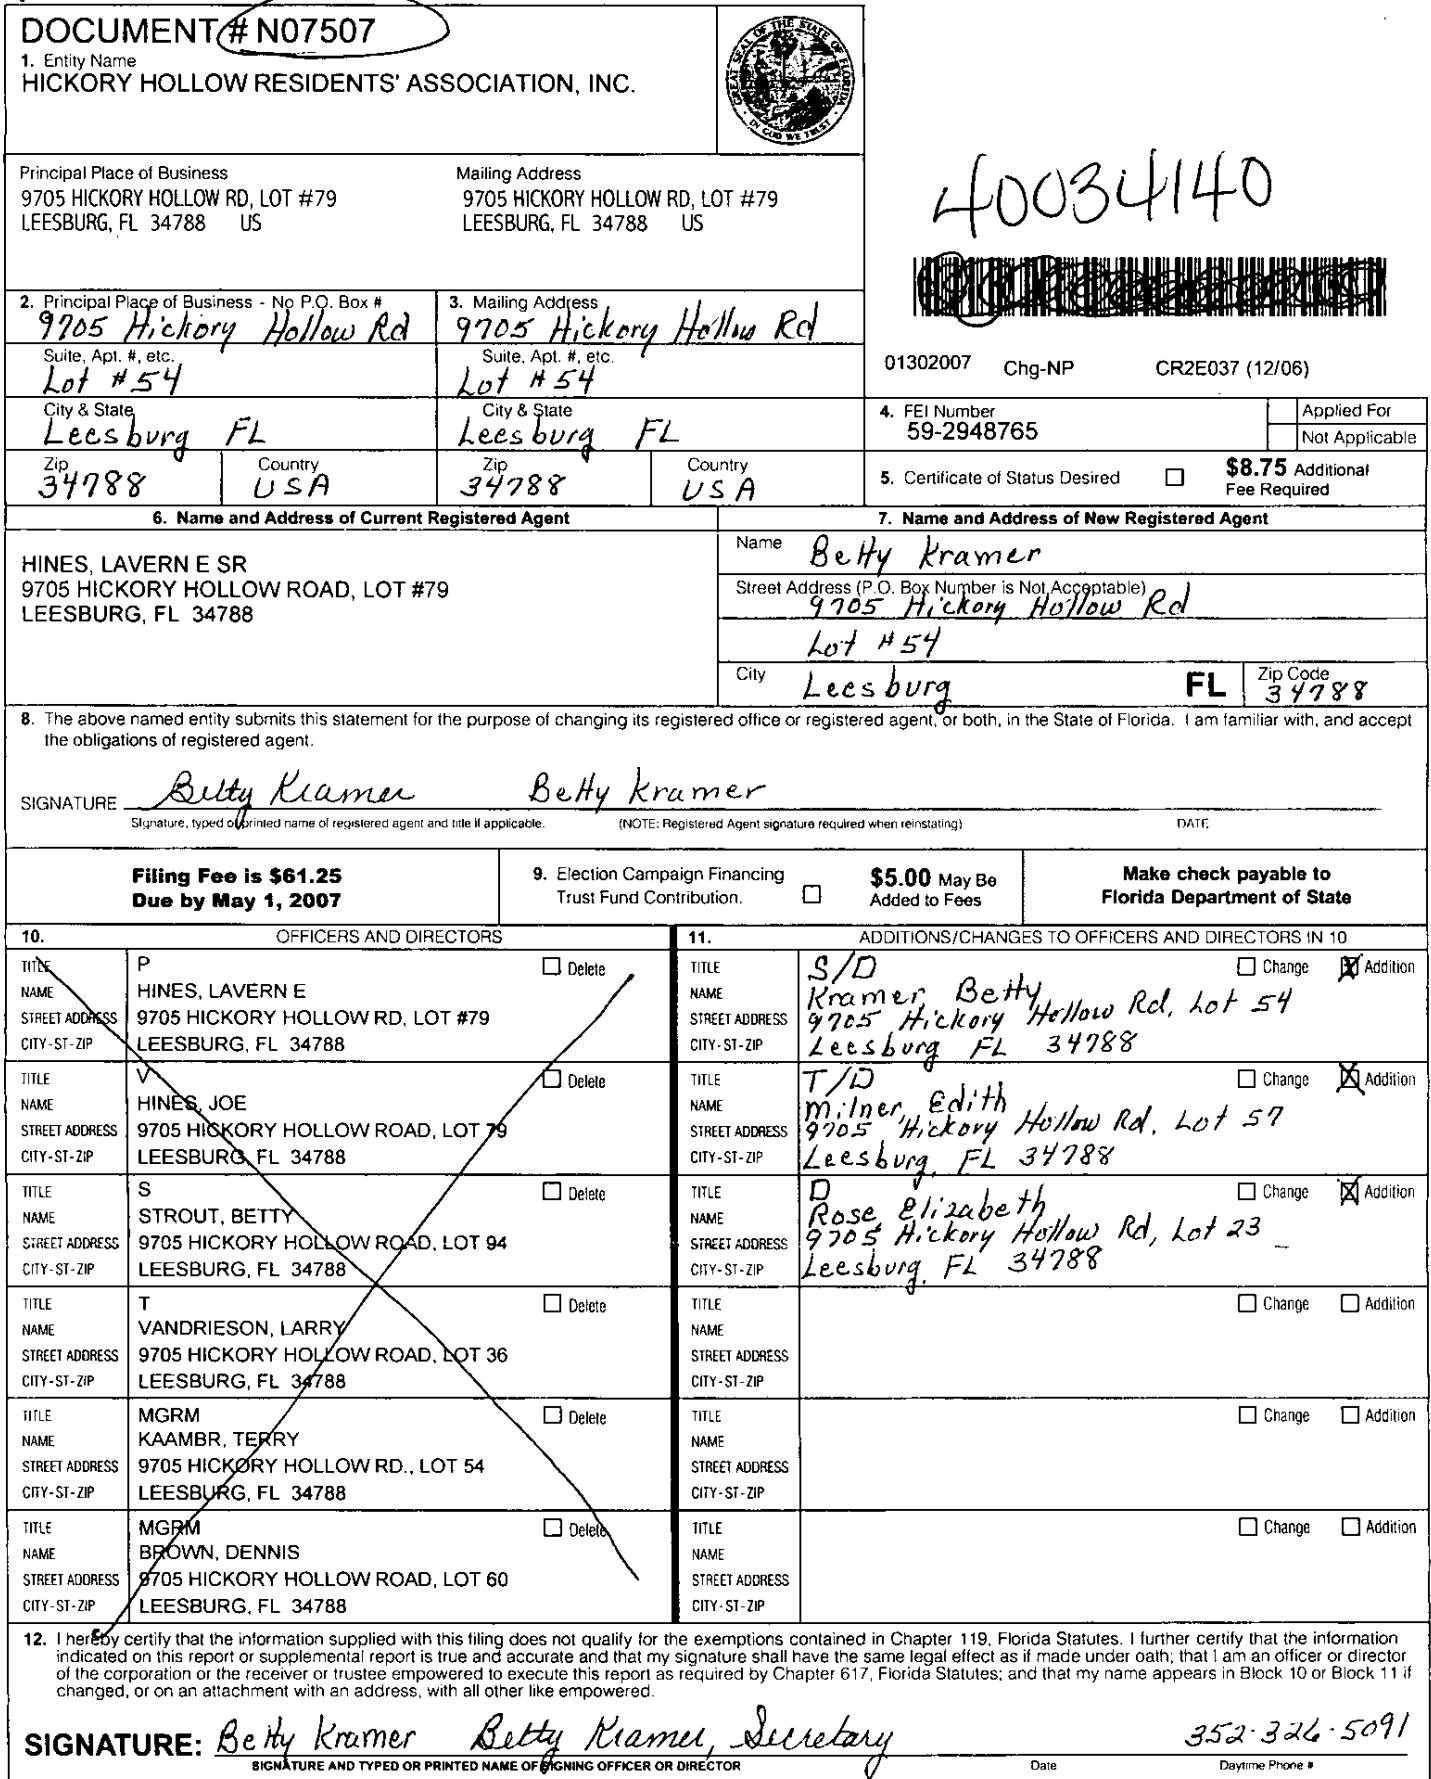 DOCUMENT # N07507
1. Entity Name
HICKORY HOLLOW RESIDENTS' ASSOCIATION, INC.
GREAT SEAL OF THE STATE OF FLORIDA
IN GOD WE TRUST
Principal Place of Business
9705 HICKORY HOLLOW RD, LOT #79
LEESBURG, FL 34788 US
Mailing Address
9705 HICKORY HOLLOW RD, LOT #79
LEESBURG, FL 34788 US
40034140
2. Principal Place of Business - No P.O. Box #
9705 Hickory Hollow Rd
Suite, Apt. #, etc.
Lot #54
City & State
Leesburg FL
Zip
34788
Country
USA
3. Mailing Address
9705 Hickory Hollow Rd
Suite, Apt. #, etc.
Lot #54
City & State
Leesburg FL
Zip
34788
Country
USA
01302007 Chg-NP CR2E037 (12/06)
4. FEI Number
59-2948765
Applied For
Not Applicable
5. Certificate of Status Desired
$8.75 Additional
Fee Required
6. Name and Address of Current Registered Agent
HINES, LAVERN E SR
9705 HICKORY HOLLOW ROAD, LOT #79
LEESBURG, FL 34788
7. Name and Address of New Registered Agent
Name Betty Kramer
Street Address (P.O. Box Number is Not Acceptable)
9705 Hickory Hollow Rd
Lot #54
City Leesburg FL Zip Code 34788
8. The above named entity submits this statement for the purpose of changing its registered office or registered agent, or both, in the State of Florida. I am familiar with, and accept
the obligations of registered agent.
SIGNATURE Betty Kramer Betty Kramer
Signature, typed or printed name of registered agent and title if applicable. (NOTE: Registered Agent signature required when reinstating) DATE
Filing Fee is $61.25
Due by May 1, 2007
9. Election Campaign Financing
Trust Fund Contribution.
$5.00 May Be
Added to Fees
Make check payable to
Florida Department of State
10. OFFICERS AND DIRECTORS
TITLE P Delete
NAME HINES, LAVERN E
STREET ADDRESS 9705 HICKORY HOLLOW RD, LOT #79
CITY-ST-ZIP LEESBURG, FL 34788
TITLE V Delete
NAME HINES, JOE
STREET ADDRESS 9705 HICKORY HOLLOW ROAD, LOT 79
CITY-ST-ZIP LEESBURG, FL 34788
TITLE S Delete
NAME STROUT, BETTY
STREET ADDRESS 9705 HICKORY HOLLOW ROAD, LOT 94
CITY-ST-ZIP LEESBURG, FL 34788
TITLE T Delete
NAME VANDRIESON, LARRY
STREET ADDRESS 9705 HICKORY HOLLOW ROAD, LOT 36
CITY-ST-ZIP LEESBURG, FL 34788
TITLE MGRM Delete
NAME KAAMBR, TERRY
STREET ADDRESS 9705 HICKORY HOLLOW RD., LOT 54
CITY-ST-ZIP LEESBURG, FL 34788
TITLE MGRM Delete
NAME BROWN, DENNIS
STREET ADDRESS 9705 HICKORY HOLLOW ROAD, LOT 60
CITY-ST-ZIP LEESBURG, FL 34788
11. ADDITIONS/CHANGES TO OFFICERS AND DIRECTORS IN 10
TITLE S/D Change X Addition
NAME Kramer, Betty
STREET ADDRESS 9705 Hickory Hollow Rd, Lot 54
CITY-ST-ZIP Leesburg FL 34788
TITLE T/D Change X Addition
NAME Milner, Edith
STREET ADDRESS 9705 Hickory Hollow Rd, Lot 57
CITY-ST-ZIP Leesburg, FL 34788
TITLE D Change X Addition
NAME Rose, Elizabeth
STREET ADDRESS 9705 Hickory Hollow Rd, Lot 23
CITY-ST-ZIP Leesburg, FL 34788
TITLE Change Addition
NAME
STREET ADDRESS
CITY-ST-ZIP
TITLE Change Addition
NAME
STREET ADDRESS
CITY-ST-ZIP
TITLE Change Addition
NAME
STREET ADDRESS
CITY-ST-ZIP
12. I hereby certify that the information supplied with this filing does not qualify for the exemptions contained in Chapter 119, Florida Statutes. I further certify that the information
indicated on this report or supplemental report is true and accurate and that my signature shall have the same legal effect as if made under oath; that I am an officer or director
of the corporation or the receiver or trustee empowered to execute this report as required by Chapter 617, Florida Statutes; and that my name appears in Block 10 or Block 11 if
changed, or on an attachment with an address, with all other like empowered.
SIGNATURE: Betty Kramer Betty Kramer, Secretary 352-326-5091
SIGNATURE AND TYPED OR PRINTED NAME OF SIGNING OFFICER OR DIRECTOR Date Daytime Phone #